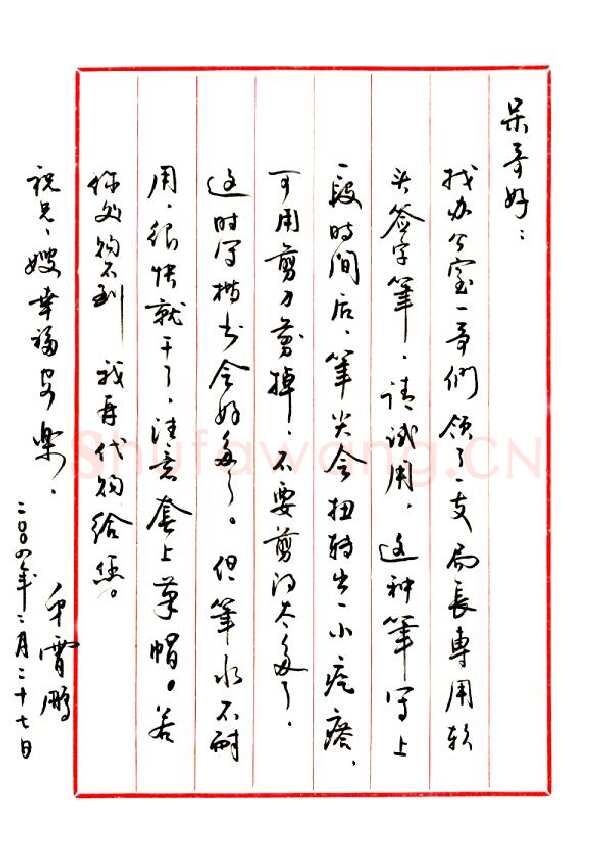 呆哥好：
找办公室一哥們领了一支局长專用软
头签字筆，请试用。这种筆写上
一段时间后，筆尖会扭转出一小疙瘩，
可用剪刀剪掉，不要剪得太多了，
这时写楷书会好多了。但筆水不耐
用，很快就干了，注意套上筆帽。若
你处购不到 我再代购给您。
祝兄、嫂幸福安樂，
霄鹏
二〇〇四年二月二十七日
Shufawang.CN